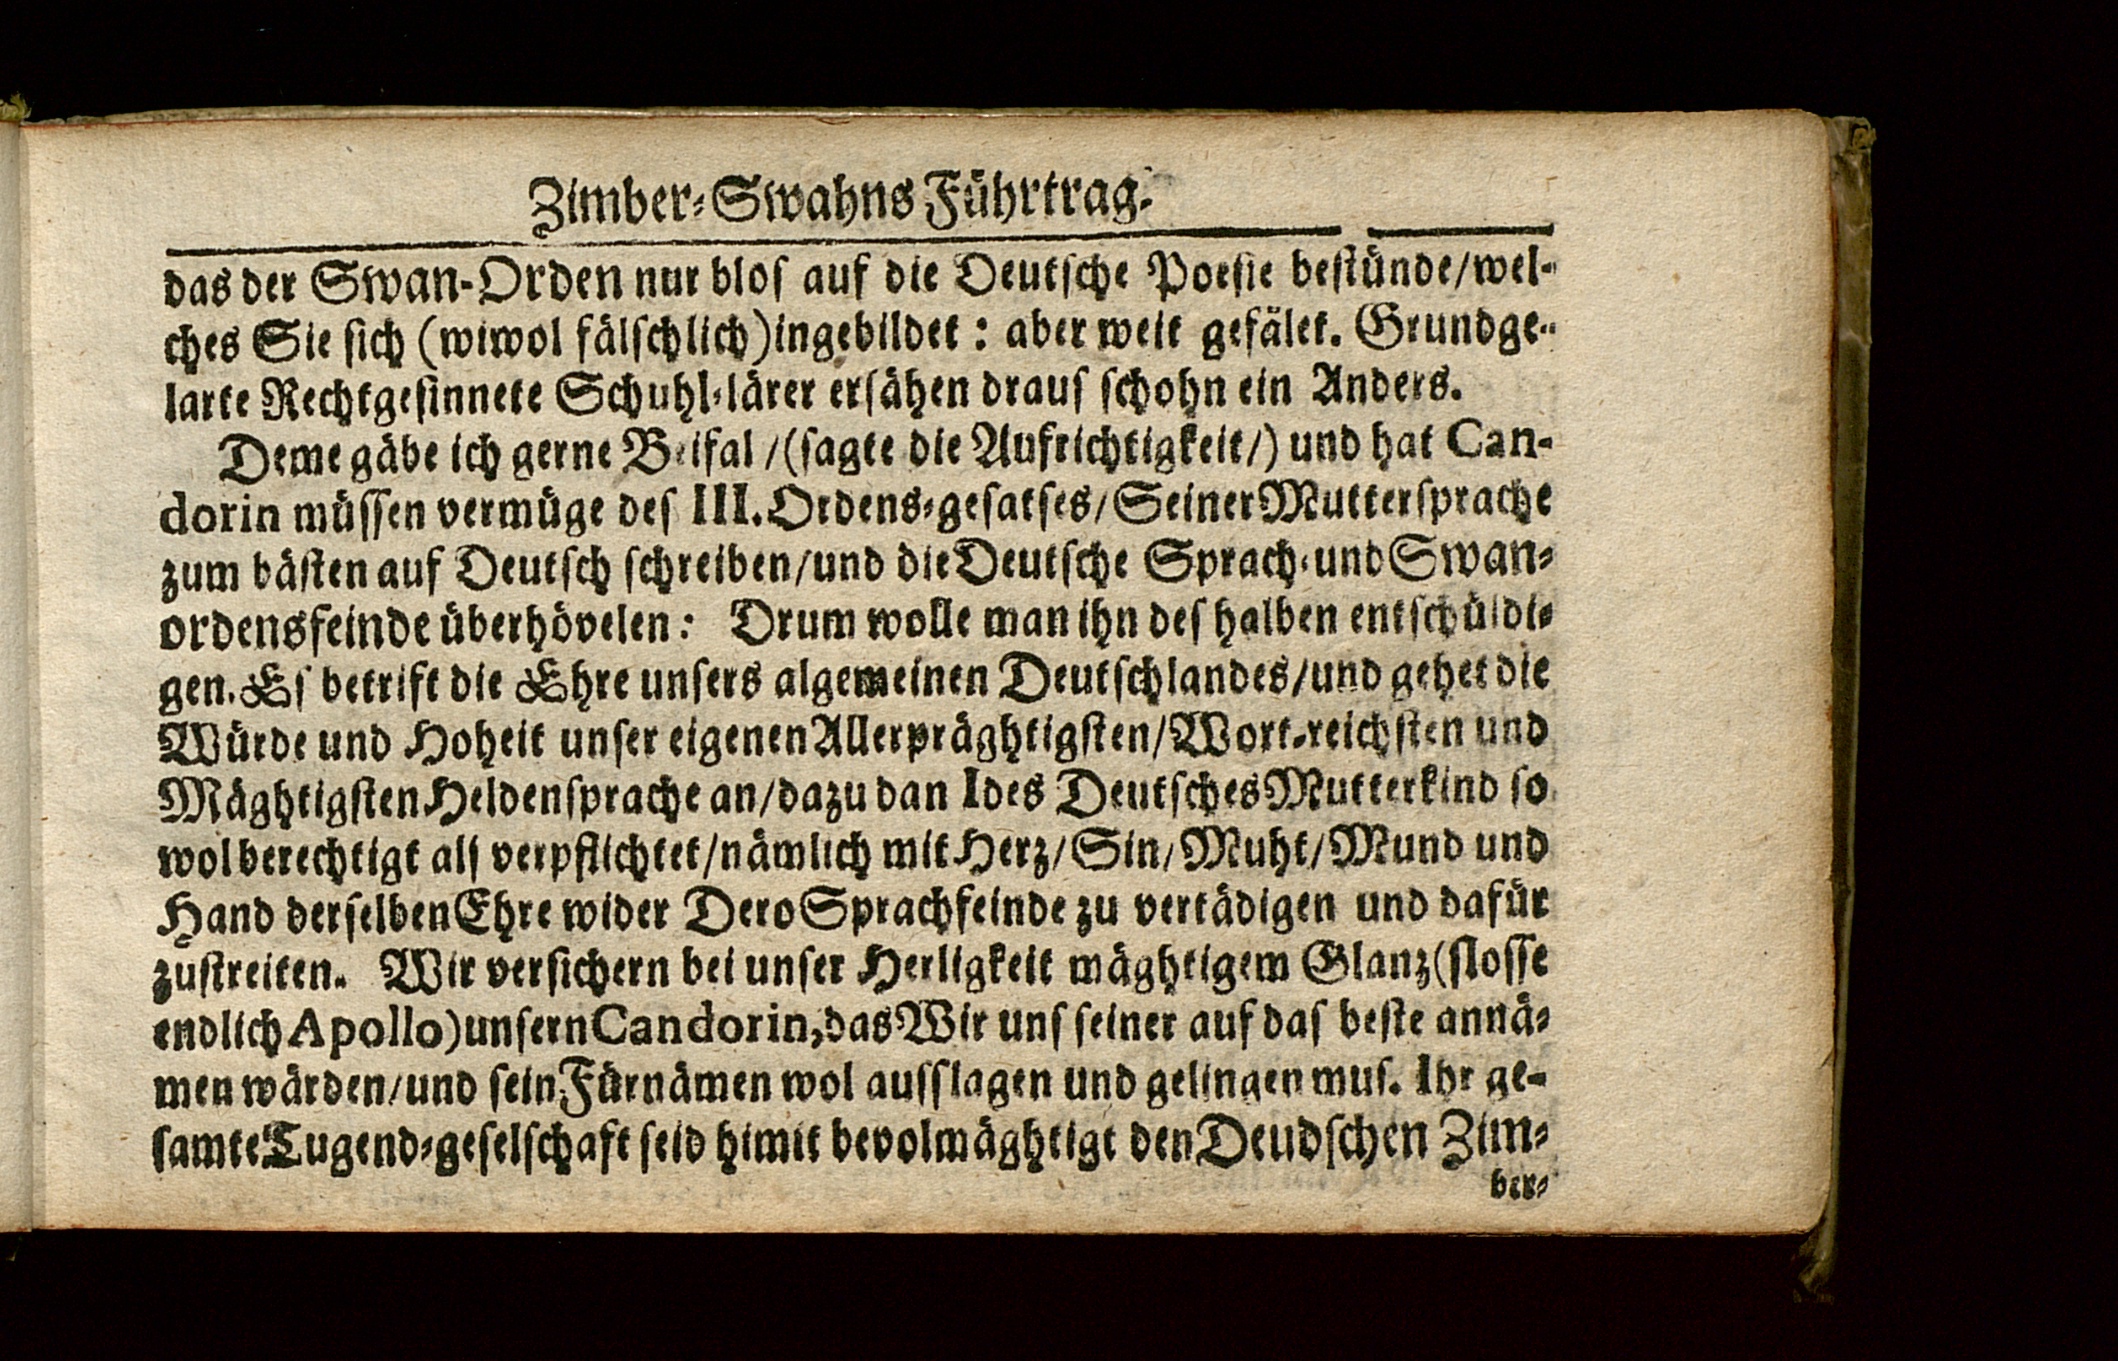 Zimber-Swahns Führtrag.
das der Swan-Orden nur bloſ auf die Deutſche Poeſie beſtünde/wel-
ches Sie ſich (wiwol fälſchlich) ingebildet: aber weit gefälet. Grundge-
larte Rechtgeſinnete Schuhl-lärer erſähen drauſ ſchohn ein Anders.
Deme gäbe ich gerne Beifal/(ſagte die Aufrichtigkeit/) und hat Can-
dorin müſſen vermüge deſ III. Ordens-geſatſes/Seiner Mutterſprache
zum bäſten auf Deutſch ſchreiben/und die Deutſche Sprach-und Swan-
ordensfeinde überhövelen: Drum wolle man ihn deſ halben entſchüldi-
gen. Eſ betrift die Ehre unſers algemeinen Deutſchlandes/und gehet die
Würde und Hoheit unſer eigenen Allerpräghtigſten/Wort-reichſten und
Mäghtigſten Heldenſprache an/dazu dan Ides Deutſches Mutterkind ſo
wol berechtigt alſ verpflichtet/nämlich mit Herz/Sin/Muht/Mund und
Hand derſelben Ehre wider Dero Sprachfeinde zu vertädigen und dafür
zuſtreiten. Wir verſichern bei unſer Herligkeit mäghtigem Glanz (ſloſſe
endlich Apollo) unſern Candorin, das Wir unſ ſeiner auf daſ beſte annä-
men wärden/und ſein Fürnämen wol auſſlagen und gelingen muſ. Ihr ge-
ſamte Tugend-geſelſchaft ſeid himit bevolmäghtigt den Deudſchen Zim-
ber-